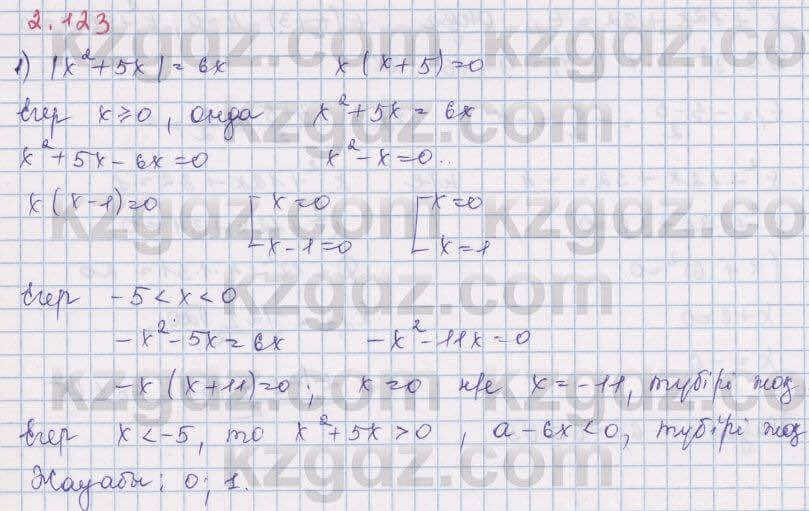 2.123
1) |x² + 5x| = 6x x(x+5)=0
Егер x ≥ 0, онда x² + 5x = 6x
x² + 5x - 6x = 0 x² - x = 0..
x(x-1)=0 [x=0 x-1=0 [x=0 x=1
Егер -5 < x < 0
-x² - 5x = 6x -x² - 11x = 0
-x(x+11)=0; x=0 н/е x=-11, түбірі жоқ
Егер x < -5, то x² + 5x > 0, а -6x < 0, түбірі жоқ
Жауабы: 0; 1.
kzgdz.com